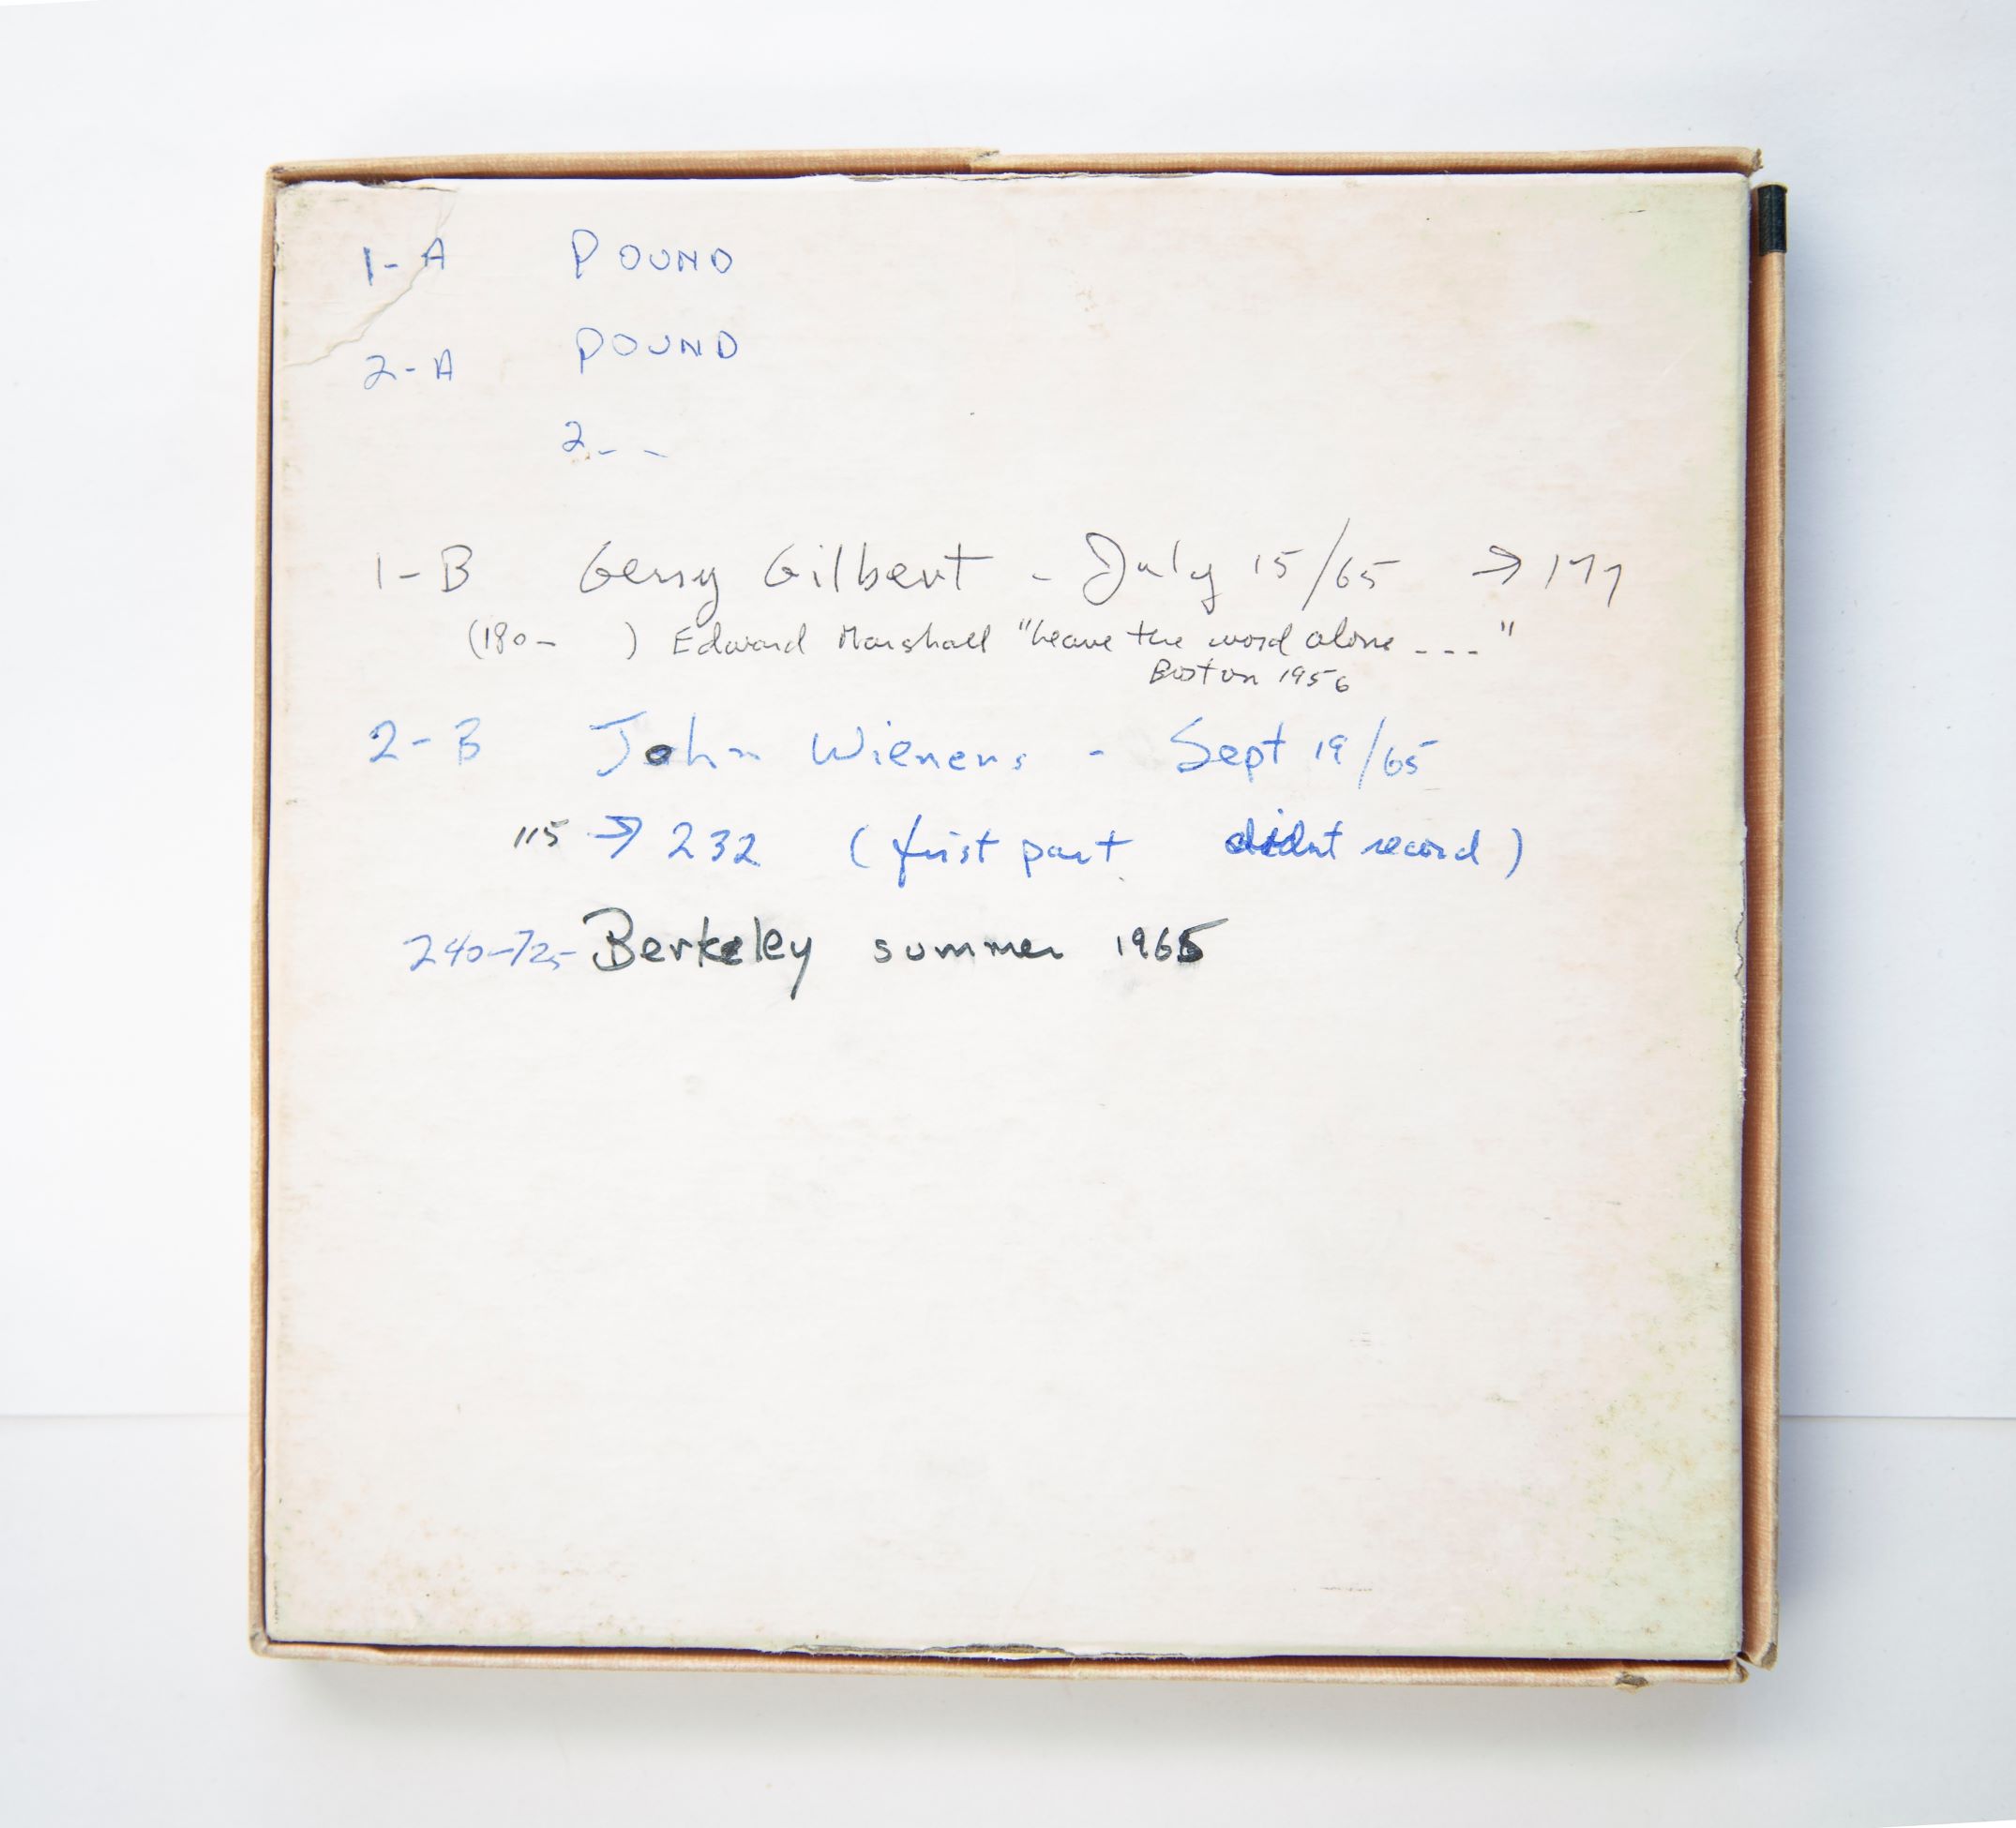 1-A POUND
2-A POUND
2 - -
1-B Gerry Gilbert - July 15/65 → 177
(180- ) Edward Marshall "Leave the word alone ---"
Boston 1956
2-B John Wieners - Sept 19/65
115 → 232 (first part didnt record)
240-725- Berkeley summer 1965